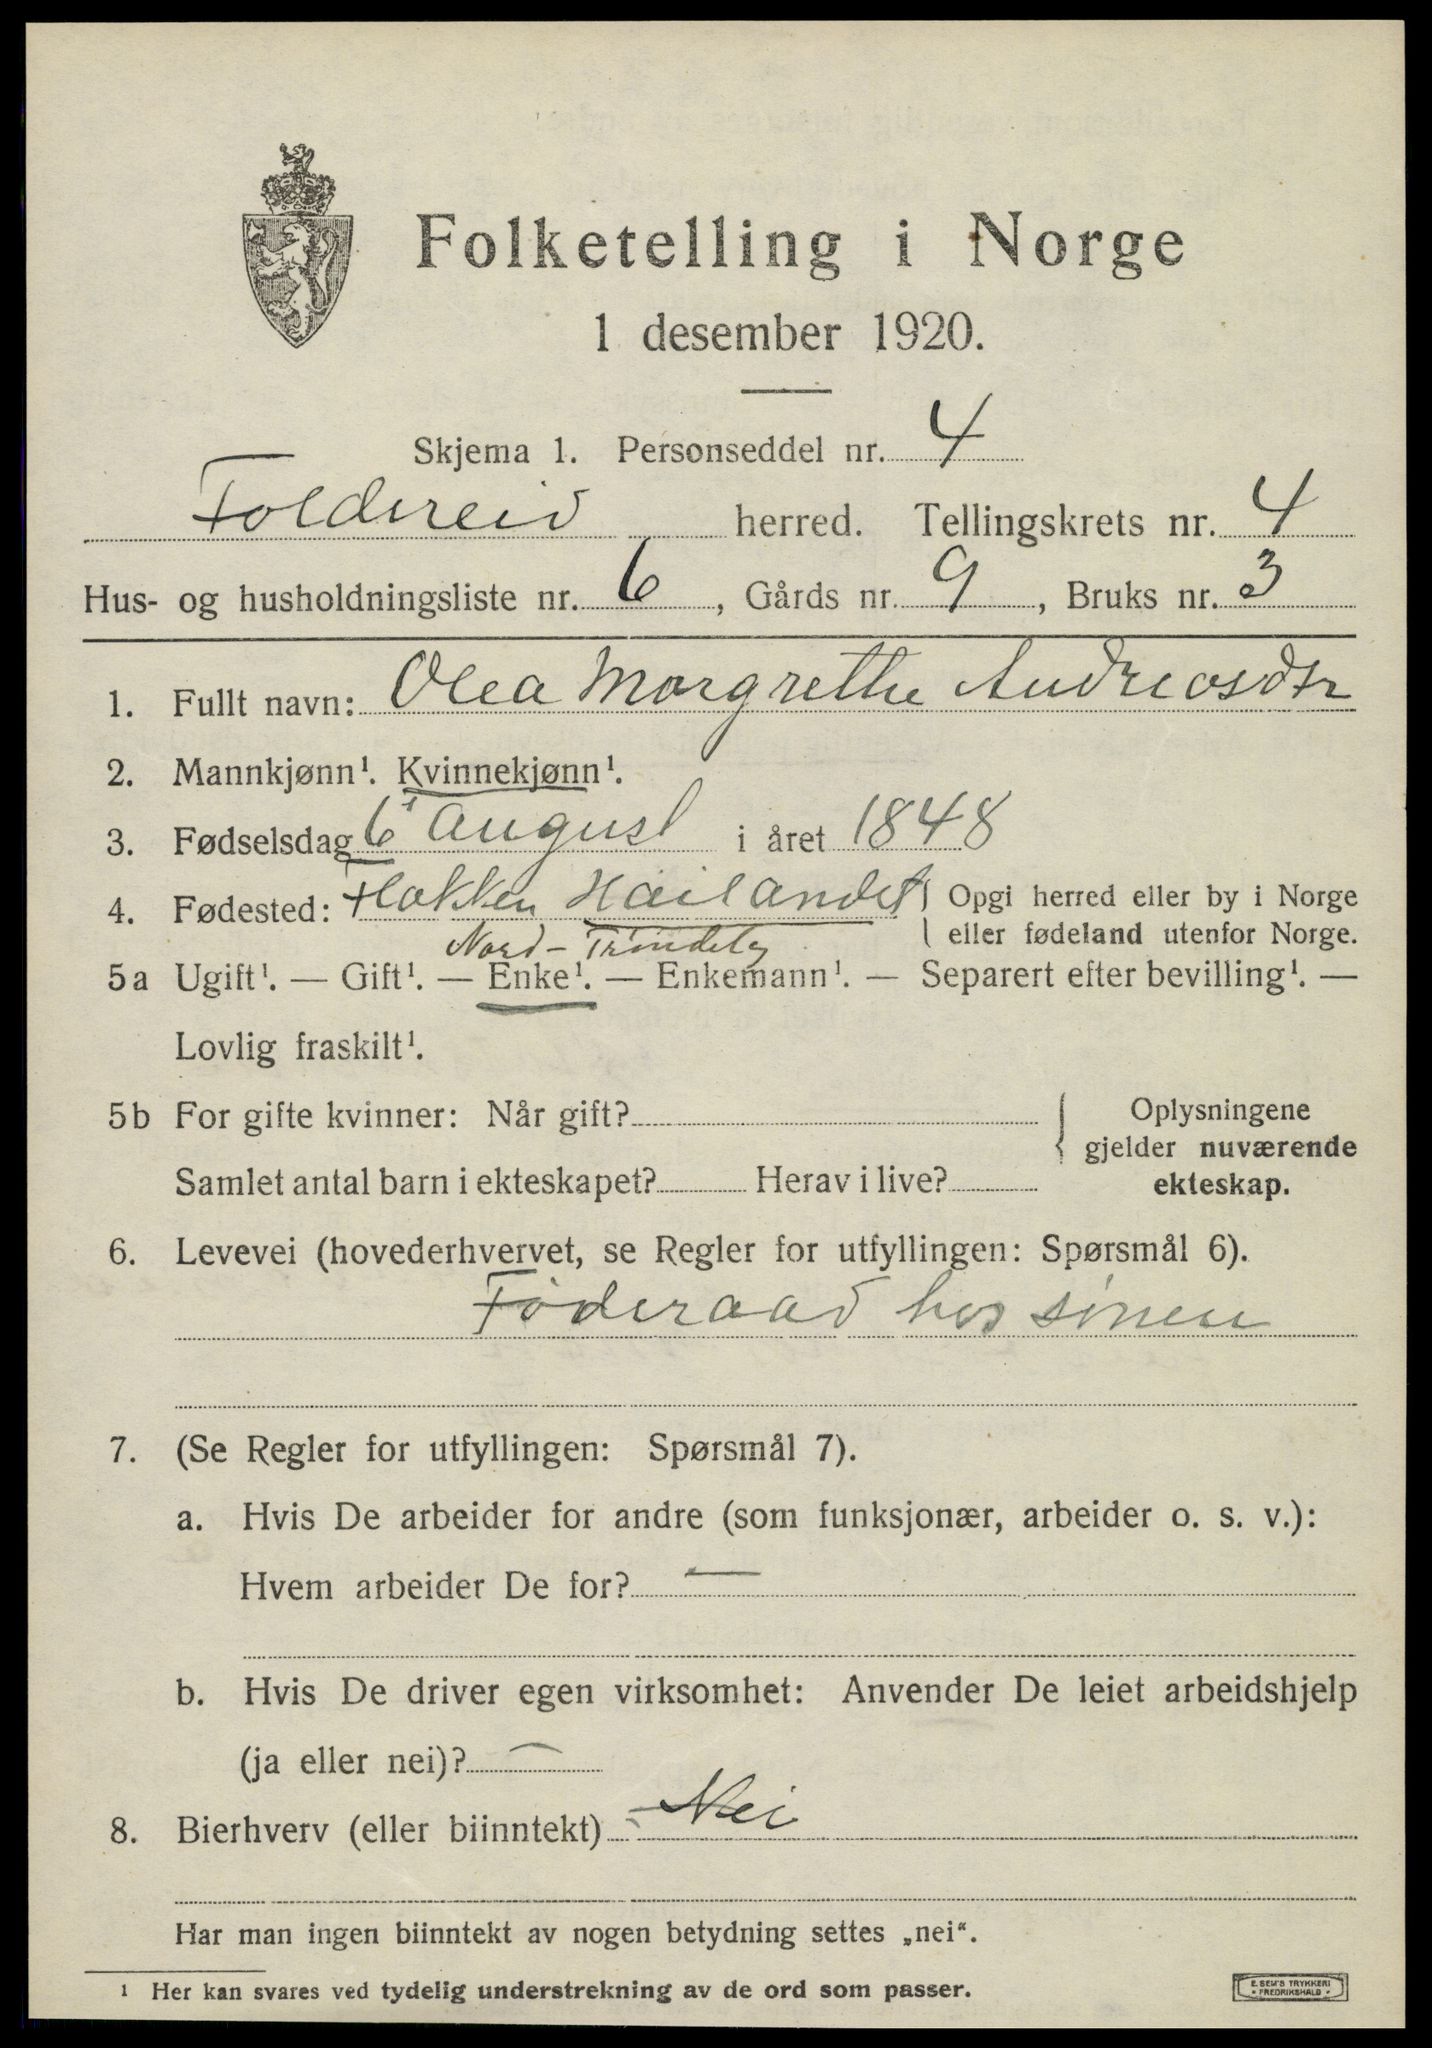 Folketelling i Norge
1 desember 1920.
Skjema 1. Personseddel nr. 4
Foldereid herred. Tellingskrets nr. 4
Hus- og husholdningsliste nr. 6, Gårds nr. 9, Bruks nr. 3
1. Fullt navn: Olea Margrethe Andreasdtr
2. Mannkjønn¹. Kvinnekjønn¹.
3. Fødselsdag 6 August i året 1848
4. Fødested: Flakken Høilandet { Opgi herred eller by i Norge
Nord-Trøndelag eller fødeland utenfor Norge.
5a Ugift¹. — Gift¹. — Enke¹. — Enkemann¹. — Separert efter bevilling¹. —
Lovlig fraskilt¹.
5b For gifte kvinner: Når gift? { Oplysningene
gjelder nuværende
Samlet antal barn i ekteskapet? Herav i live? ekteskap.
6. Levevei (hovederhvervet, se Regler for utfyllingen: Spørsmål 6).
Føderaad hos sønen
7. (Se Regler for utfyllingen: Spørsmål 7).
a. Hvis De arbeider for andre (som funksjonær, arbeider o. s. v.):
Hvem arbeider De for? —
b. Hvis De driver egen virksomhet: Anvender De leiet arbeidshjelp
(ja eller nei)? —
8. Bierhverv (eller biinntekt) Nei
Har man ingen biinntekt av nogen betydning settes „nei“.
¹ Her kan svares ved tydelig understrekning av de ord som passer.
E. SEM'S TRYKKERI
• FREDRIKSHALD •